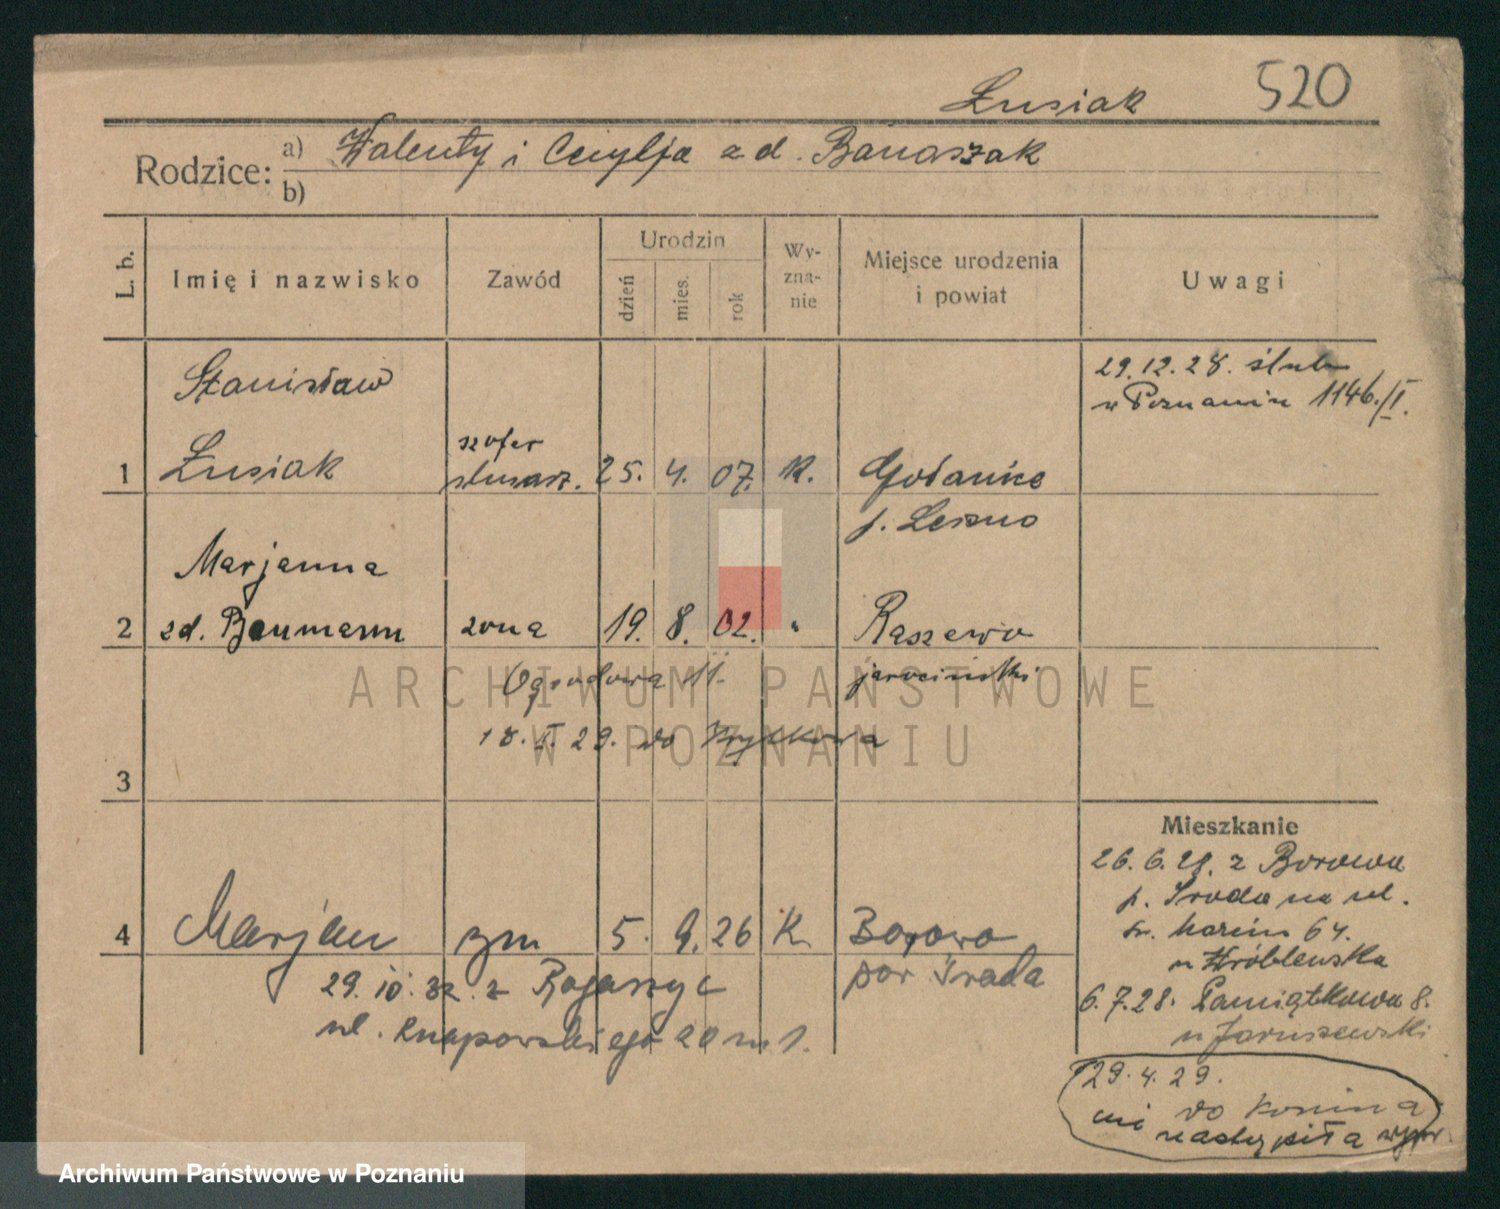 Łusiak 520
Rodzice: a) Walenty i Cecylja z d. Banaszak
b)
L. b. Imię i nazwisko Zawód Urodzin Wy-zna-nie Miejsce urodzenia i powiat Uwagi
dzień mies. rok
29.12.28. ślub
w Poznaniu 1146./I.
Stanisław
szofer
1 Łusiak ślusarz. 25. 4. 07. K. Gołanice
p. Leszno
Marjanna
2 zd. Baumann żona 19. 8. 02. " Raszewo
jarociński
Ogrodowa 11.
18. I. 29. do
3
4 Marjan syn 5. 9. 26 K. Borowo
pow Środa
29. 10. 32. z Rogaszyc
ul. Knapowskiego 20 m 1.
Mieszkanie
26. 6. 28. z Borowa
p. Środa na ul.
św. Marcin 64.
u Wróblewska
6.7.28. Pamiątkowa 8.
u Jaruszewski
29.4.29.
do Konina
nie nastąpiła wypr.
ARCHIWUM PAŃSTWOWE
W POZNANIU
Archiwum Państwowe w Poznaniu